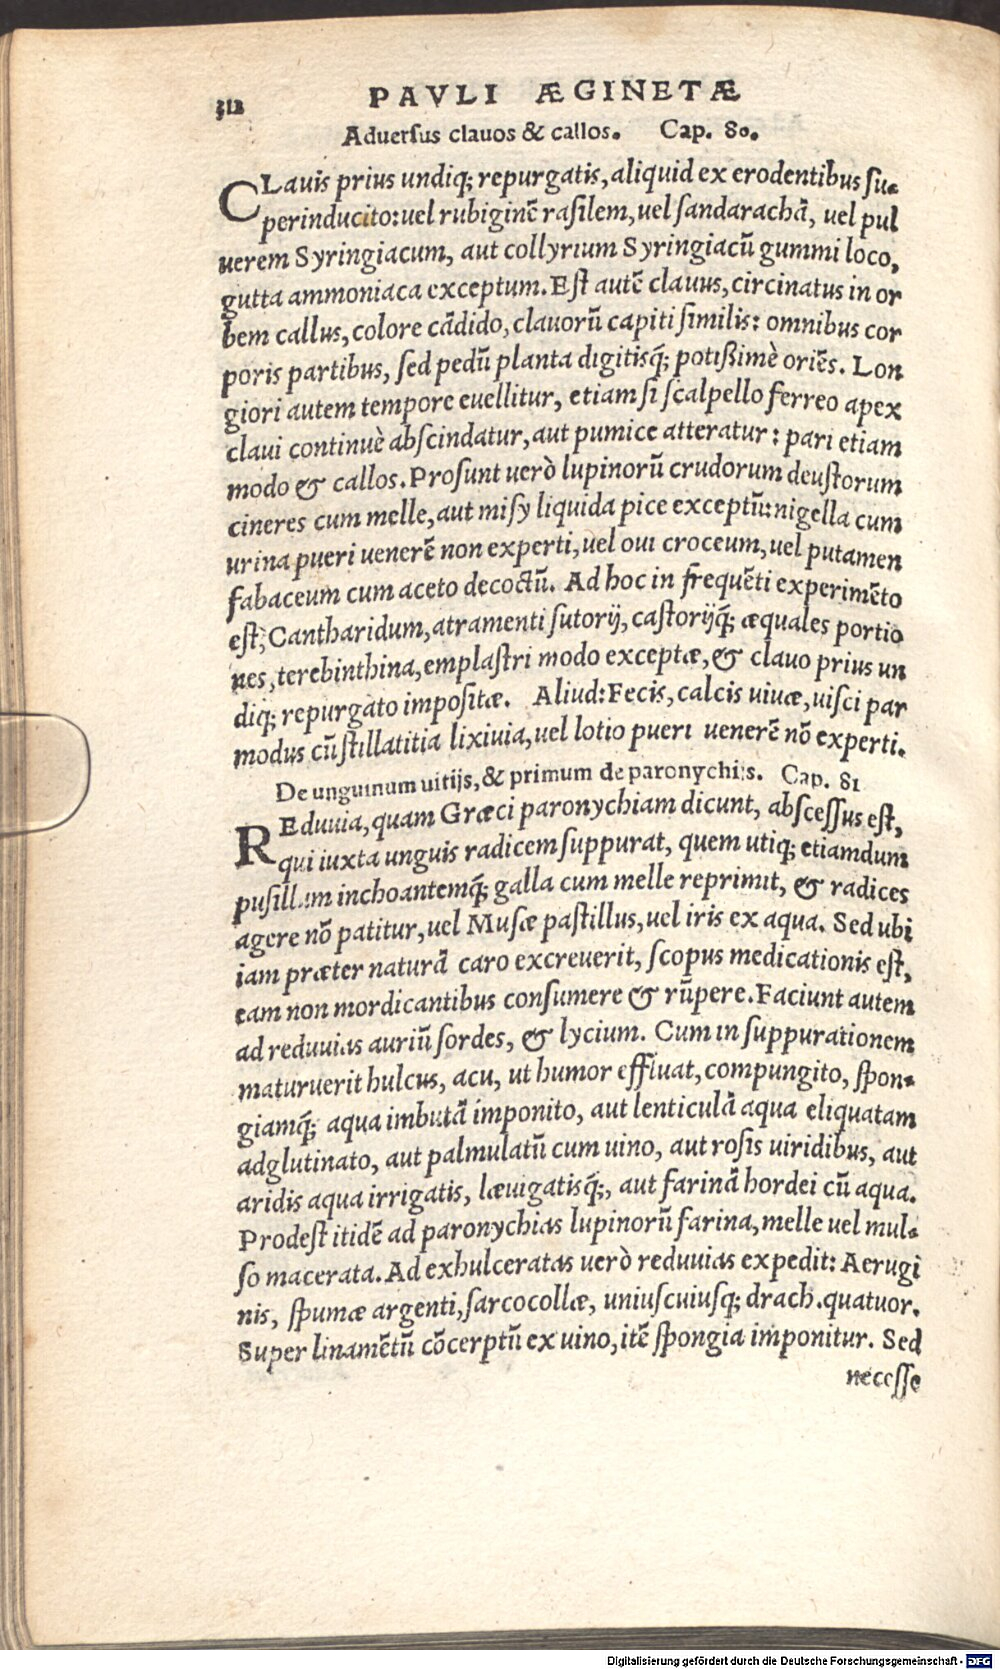 312
PAVLI ÆGINETÆ
Aduersus clauos & callos. Cap. 80.
CLauis prius undiq; repurgatis, aliquid ex erodentibus su-
perinducito: uel rubiginē rasilem, uel sandarachā, uel pul
uerem Syringiacum, aut collyrium Syringiacū gummi loco,
gutta ammoniaca exceptum. Est autē clauus, circinatus in or
bem callus, colore cādido, clauorū capiti similis: omnibus cor
poris partibus, sed pedū planta digitisq́; potißimè oriēs. Lon
giori autem tempore euellitur, etiam si scalpello ferreo apex
claui continuè abscindatur, aut pumice atteratur: pari etiam
modo & callos. Prosunt uerò lupinorū crudorum deustorum
cineres cum melle, aut misy liquida pice exceptū: nigella cum
urina pueri uenerē non experti, uel oui croceum, uel putamen
fabaceum cum aceto decoctū. Ad hoc in frequēti experimēto
est, Cantharidum, atramenti sutorij, castorijq́; æquales portio
nes, terebinthina, emplastri modo exceptæ, & clauo prius un
diq; repurgato impositæ. Aliud: Fecis, calcis uiuæ, uisci par
modus cū stillatitia lixiuia, uel lotio pueri uenerē nō experti.
De unguinum uitijs, & primum de paronychijs. Cap. 81
REduuia, quam Græci paronychiam dicunt, abscessus est,
qui iuxta unguis radicem suppurat, quem utiq; etiamdum
pusillum inchoantemq́; galla cum melle reprimit, & radices
agere nō patitur, uel Musæ pastillus, uel iris ex aqua. Sed ubi
iam præter naturā caro excreuerit, scopus medicationis est,
eam non mordicantibus consumere & rūpere. Faciunt autem
ad reduuias auriū sordes, & lycium. Cum in suppurationem
maturuerit hulcus, acu, ut humor effluat, compungito, spon-
giamq́; aqua imbutā imponito, aut lenticulā aqua eliquatam
adglutinato, aut palmulatū cum uino, aut rosis uiridibus, aut
aridis aqua irrigatis, læuigatisq́;, aut farinā hordei cū aqua.
Prodest itidē ad paronychias lupinorū farina, melle uel mul-
so macerata. Ad exhulceratas uerò reduuias expedit: Aerugi
nis, spumæ argenti, sarcocollæ, uniuscuiusq; drach. quatuor.
Super linamētū cōcerptū ex uino, itē spongia imponitur. Sed
necesse
Digitalisierung gefördert durch die Deutsche Forschungsgemeinschaft - DFG